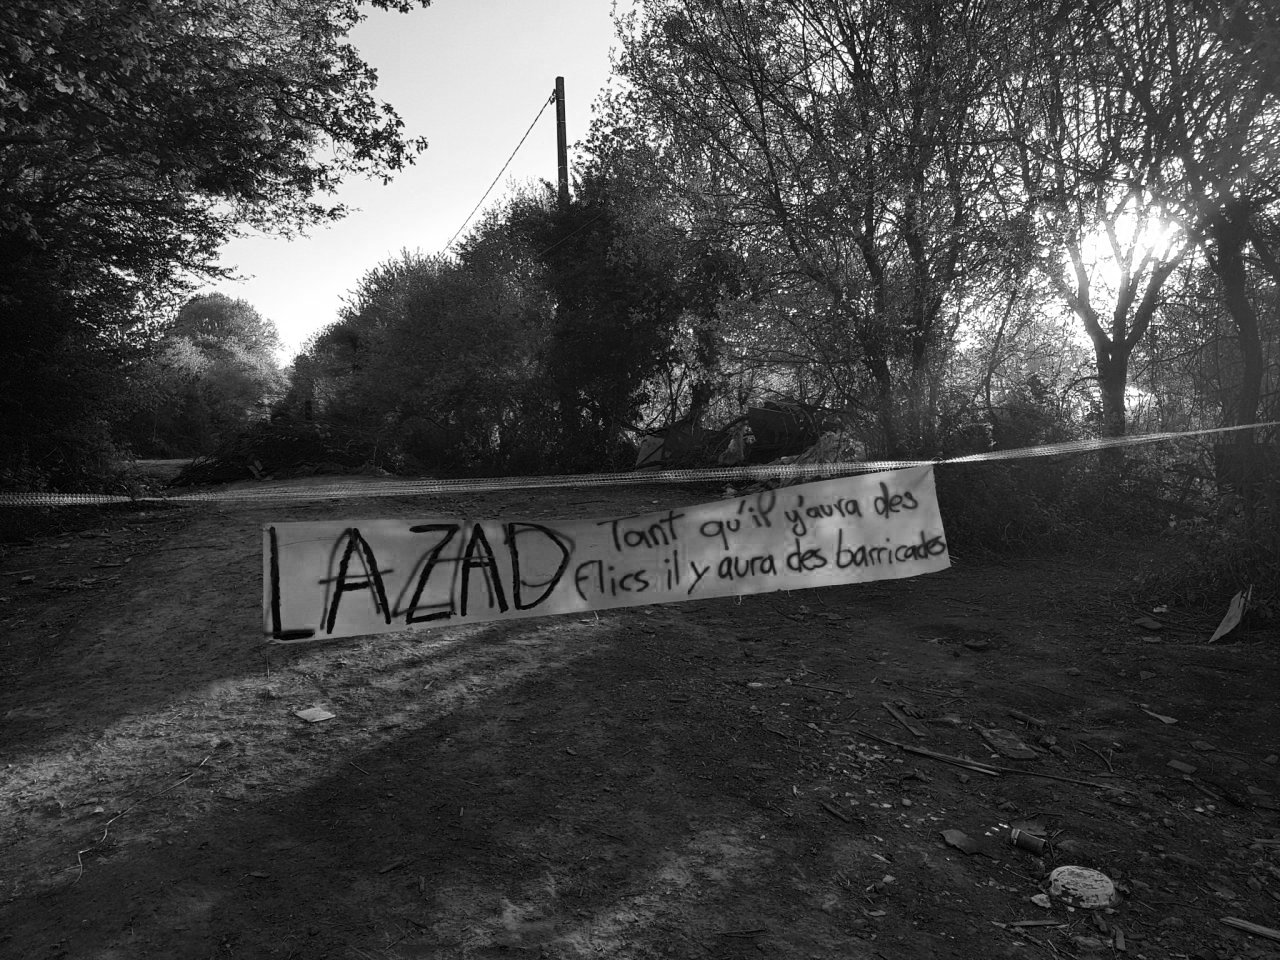 LA ZAD
Tant qu'il y'aura des
flics il y aura des barricades